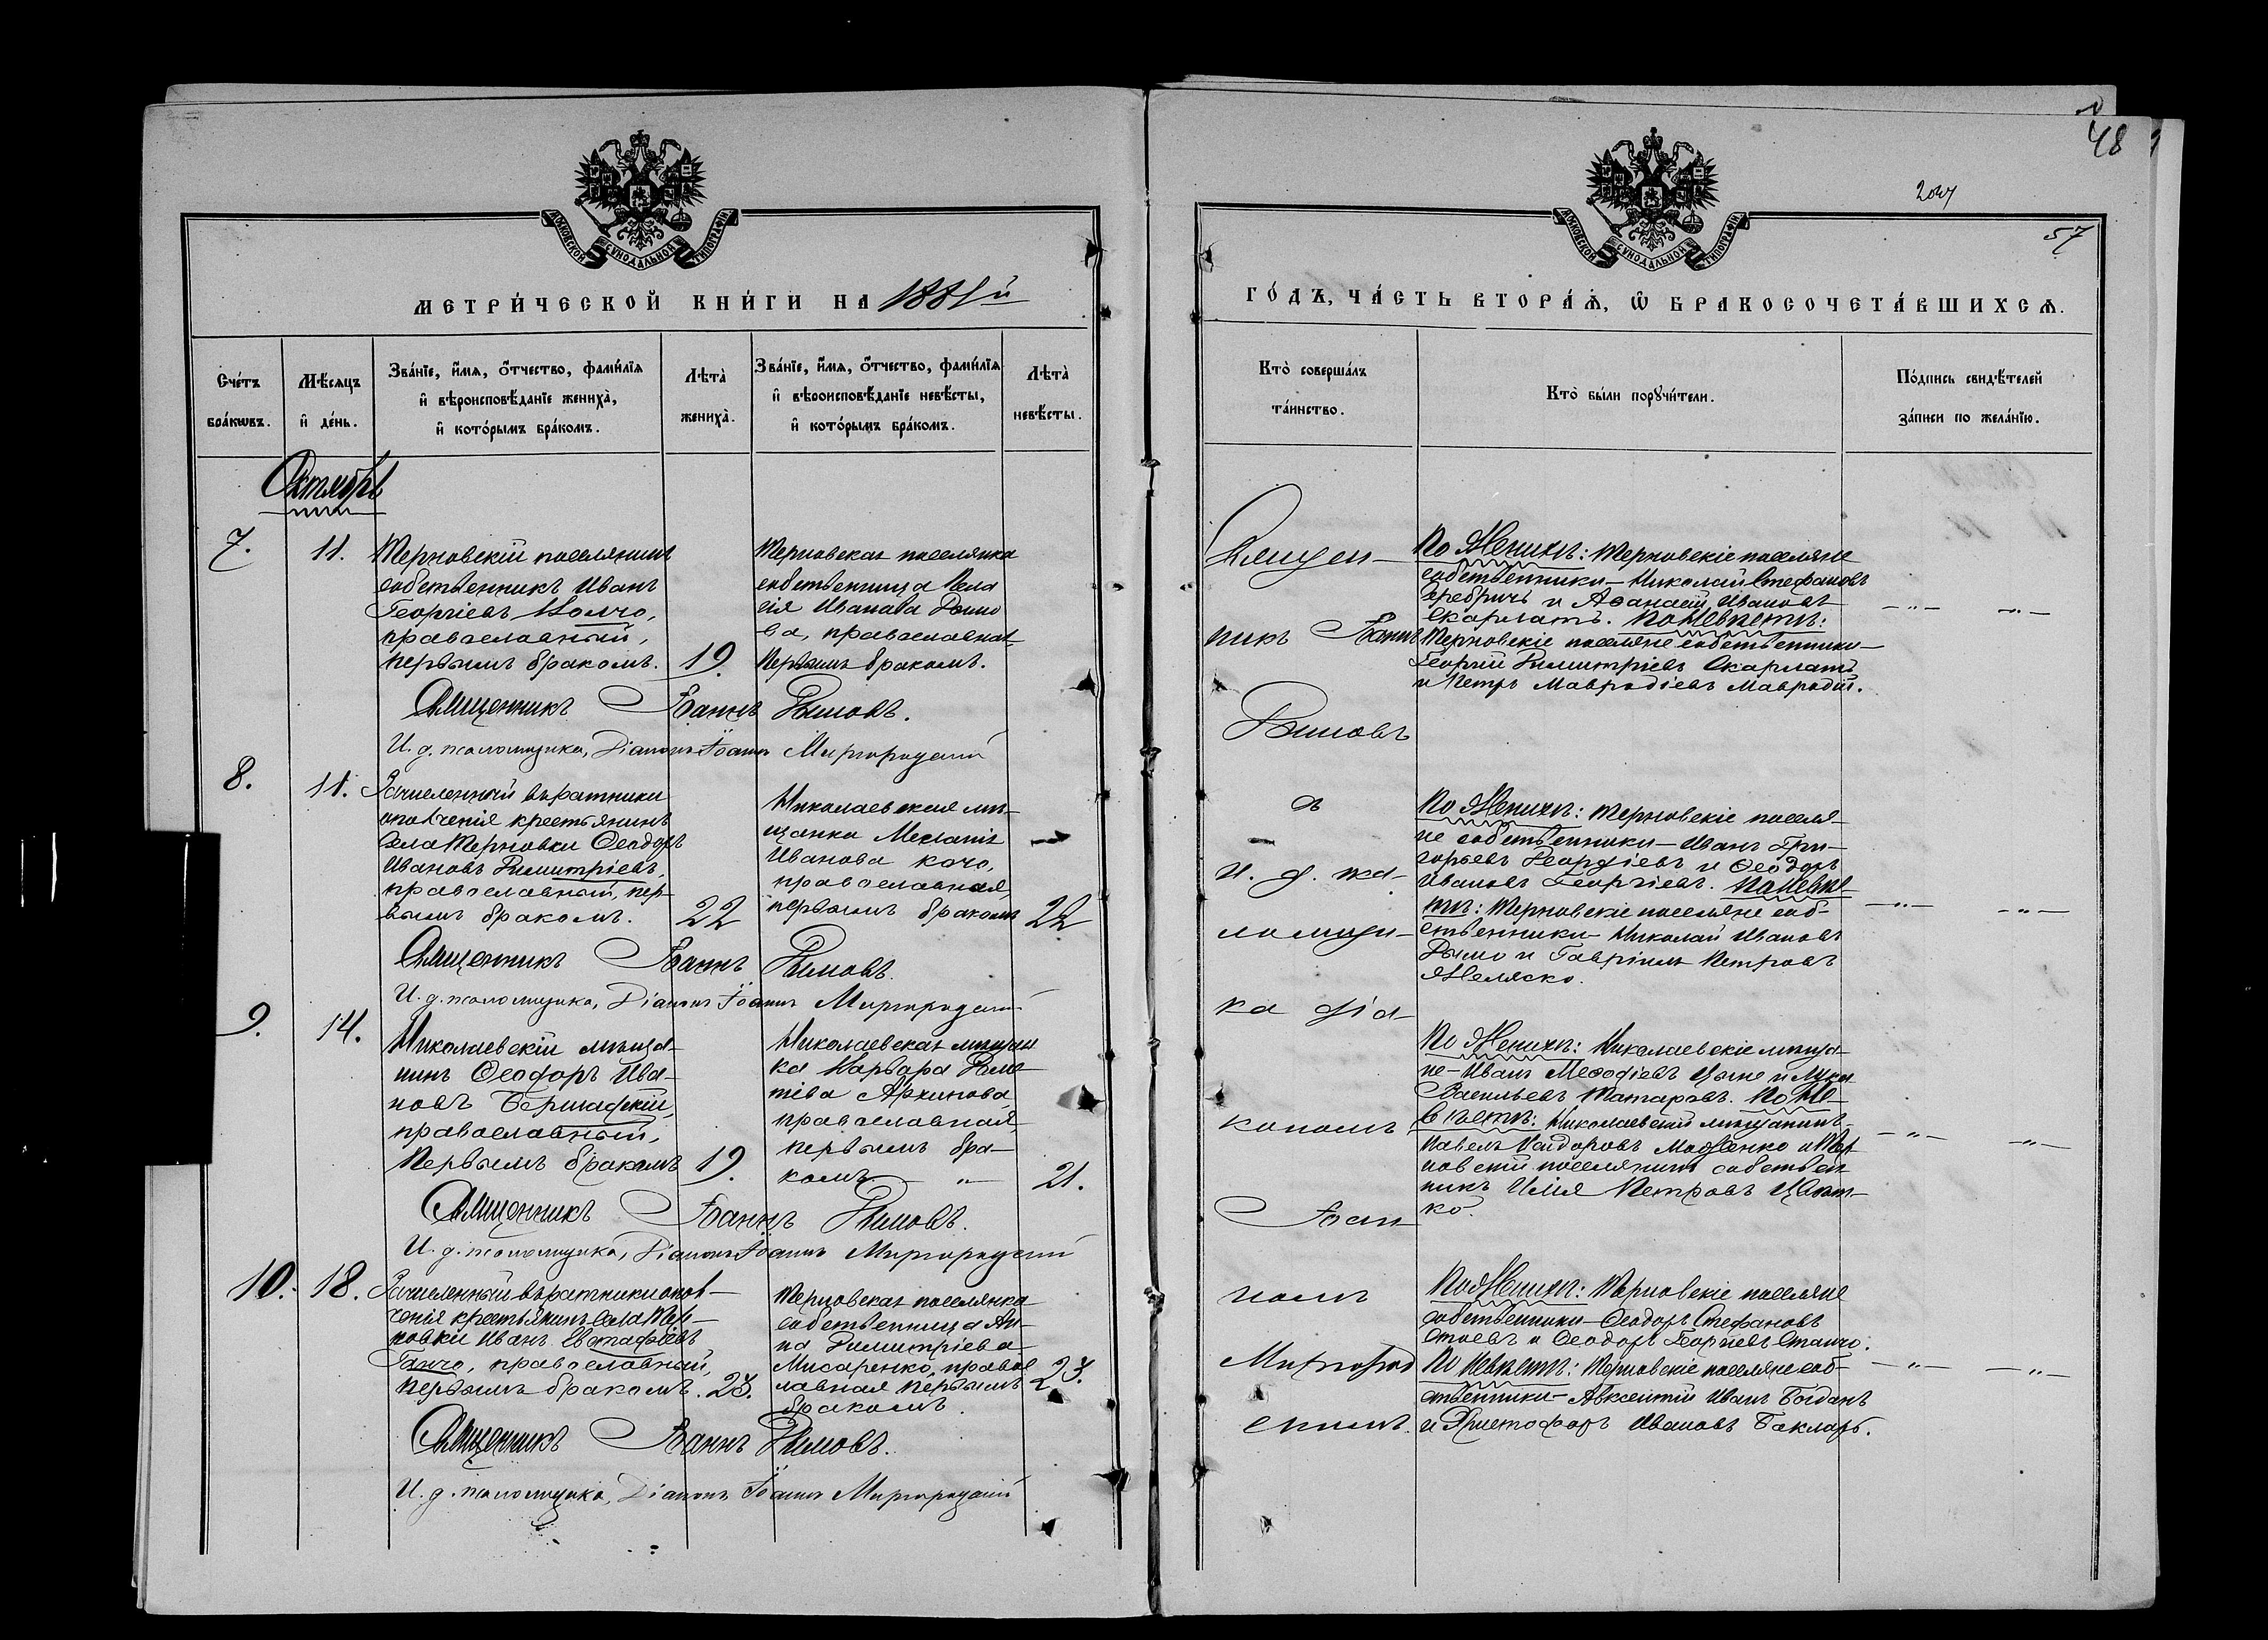 48
204
57
МОСКОВСКОЙ СУНОДАЛЬНОЙ ТИПОГРАФІИ
МЕТРИ́ЧЕСКОЙ КНИ́ГИ НА 1881й
Сче́тъ бра́кѡвъ.
Мѣ́сяцъ и҆ де́нь.
Зва́нїе, и҆́мѧ, ѻ҆́тчество, фами́лїѧ
и҆ вѣроисповѣ́данїе жениха̀,
и҆ кото́рымъ бра́комъ.
Лѣта̀ жениха̀.
Зва́нїе, и҆́мѧ, ѻ҆́тчество, фами́лїѧ
и҆ вѣроисповѣ́данїе невѣ́сты,
и҆ кото́рымъ бра́комъ.
Лѣта̀ невѣ́сты.
Октябрь
7.
11.
Терновскій поселянинъ
собственникъ Иванъ
Георгіевъ Колчо,
православный,
первымъ бракомъ.
19.
Терновская поселянка
собственница Вела
сія Иванова Дымо
ва, православная,
первымъ бракомъ.
Священникъ Іоаннъ Димовъ.
И. д. псаломщика, Діаконъ Іоаннъ Миргородскій
8.
11.
Зачисленный въ ратники
ополченія крестьянинъ
села Терновки Ѳеодоръ
Ивановъ Димитріевъ,
православный, пер-
вымъ бракомъ.
22
Николаевская мѣ-
щанка Меланія
Иванова Кочо,
православная,
первымъ бракомъ
22
Священникъ Іоаннъ Димовъ.
И. д. псаломщика, Діаконъ Іоаннъ Миргородскій
9.
14.
Николаевскій мѣща-
нинъ Ѳеодоръ Ива-
новъ Бершадскій,
православный,
первымъ бракомъ
19.
Николаевская мѣщан
ка Варвара
Архипова,
православная,
первымъ бра-
комъ. „
21.
Священникъ Іоаннъ Димовъ.
И. д. псаломщика, Діаконъ Іоаннъ Миргородскій
10.
18.
Зачисленный въ ратники опол-
ченія крестьянинъ села Тер-
новки Иванъ Евстафіевъ
Ганчо, православный,
первымъ бракомъ.
23.
Терновская поселянка
собственница Ан-
на Димитріева
Мисаренко, правос
лавная первымъ
бракомъ.
23.
Священникъ Іоаннъ Димовъ.
И. д. псаломщика, Діаконъ Іоаннъ Миргородскій
МОСКОВСКОЙ СУНОДАЛЬНОЙ ТИПОГРАФІИ
ГО́ДЪ, ЧА́СТЬ ВТОРА́Ѧ, Ѡ҆ БРАКОСОЧЕТА́ВШИХСѦ.
Кто̀ соверша́лъ
та́инство.
Кто̀ бы́ли порꙋчи́тели.
По́дпись свидѣ́телей
за́писи по жела́нїю.
Священ-
никъ Іоаннъ
Димовъ
и
И. д. пса-
ломщи-
ка діа-
кономъ
Іоан-
номъ
Миргород
скимъ.
По Женихѣ: Терновскіе поселяне
собственники – Николай Стефановъ
Сребричъ и Аѳанасій Ивановъ
Скарлатъ. По Невѣстѣ:
Терновскіе поселяне собственники –
Георгій Димитріевъ Скарлатъ
и Петръ Мавродіевъ Мавродій.
– „ – – „ –
По Женихѣ: Терновскіе поселя-
не собственники – Иванъ Гри-
горьевъ Георгіевъ и Ѳеодоръ
Ивановъ Георгіевъ. По Невѣс-
тѣ: Терновскіе поселяне соб-
ственники – Николай Ивановъ
Дымо и Гавріилъ Петровъ
Желяско.
– „ – – „ –
По Женихѣ: Николаевскіе мѣща-
не – Иванъ Меѳодіевъ и Лука
Васильевъ Татаровъ. По Не-
вѣстѣ: Николаевскій мѣщанинъ –
Павелъ и Тер
новскій поселянинъ собствен
никъ Илія Петровъ Цвят-
ко.
– „ – – „ –
По Женихѣ: Терновскіе поселяне
собственники – Ѳеодоръ Стефановъ
Стоевъ и Ѳеодоръ Георгіевъ Станчо.
По Невѣстѣ: Терновскіе поселяне соб-
ственники – Авксентій Иванъ Богданъ
и Христофоръ Ивановъ Бакларъ.
– „ – – „ –